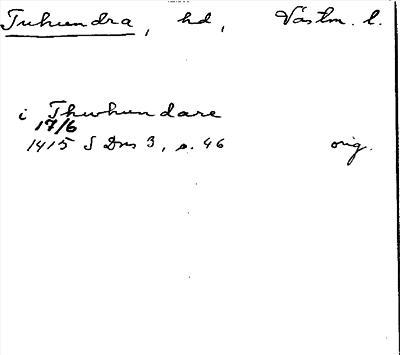 Tuhundra, hd, Västm. l.
i Thwhundare
17/6
1415 S Dns 3, s. 46 orig.